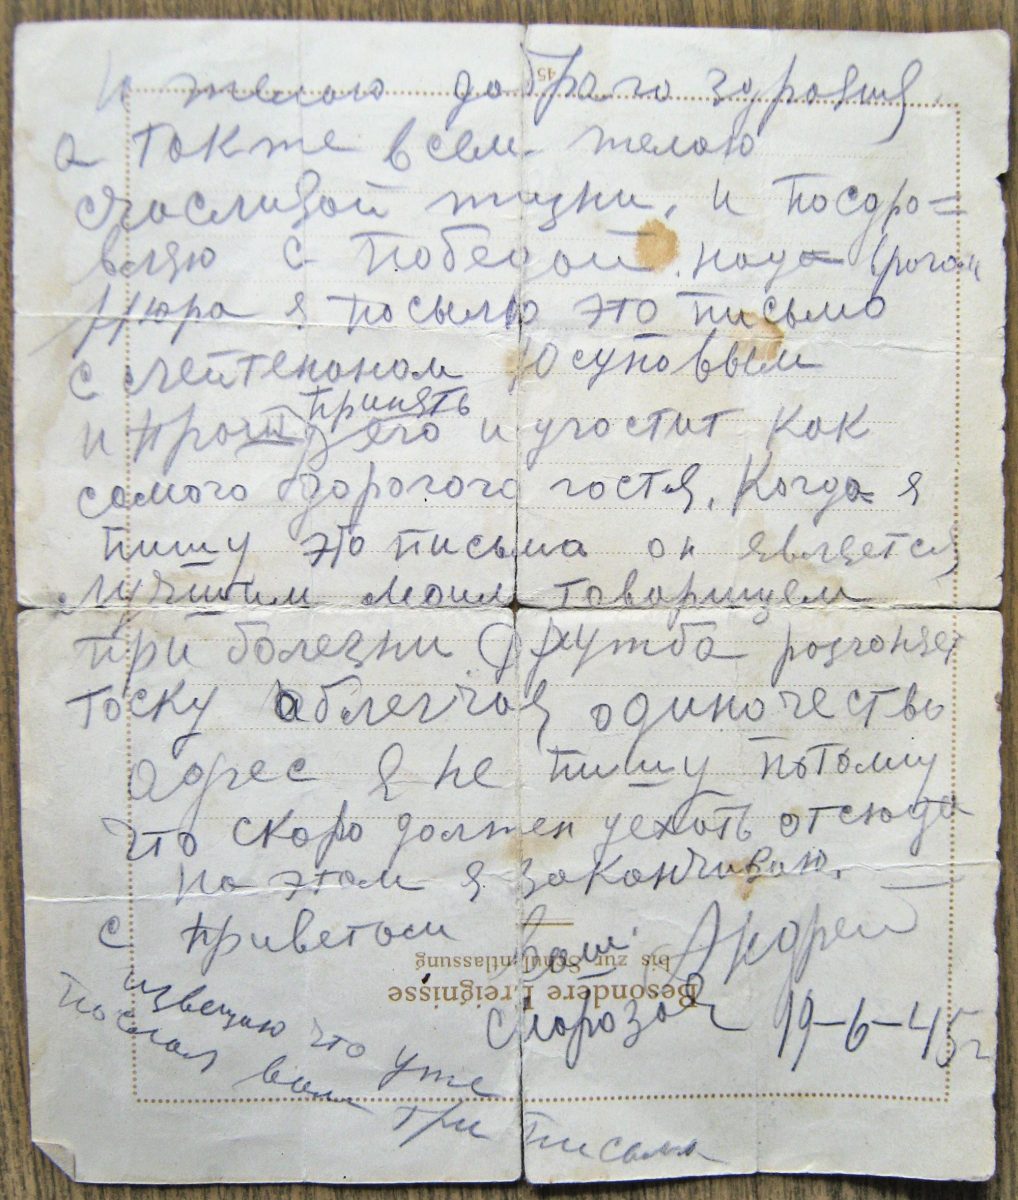 и желаю доброго здровия,
а также всем желаю
счасливой жизни, и посдро=
вляю с победой, нада врагом
Шура я посылаю это письмо
с лейтенаном Юсуповым
принять
и прошу его и угостит как
самого дорогого гостя, Когда я
пишу это письма он является
лучшим моим товарищем
при болезни Дружба разгоняет
тоску аблегчая одиночество
адрес я не пишу потому
что скоро должен уехать отсюда
на этом я заканчиваю.
с приветом Ваш. Андрей
Морозов 19-6-45г
извещаю что уже
послал вам три письма
45
bis zur Schulentlassung
Besondere Ereignisse